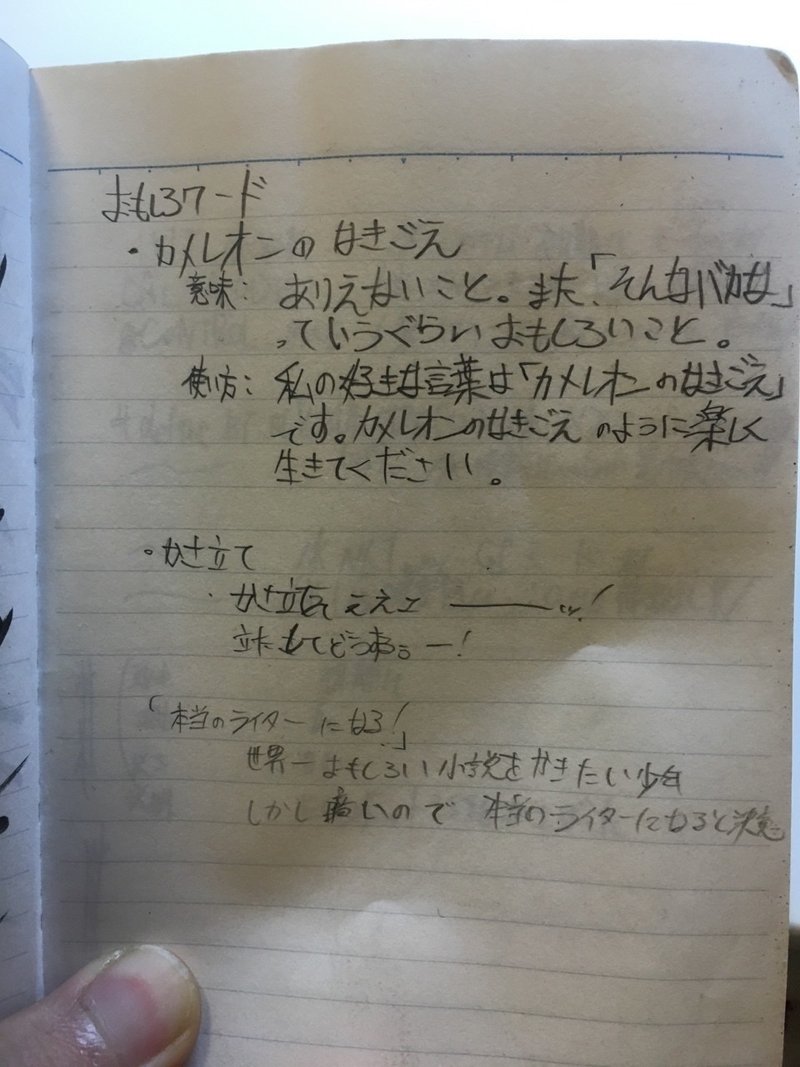 おもしろワード
・カメレオンのなきごえ
意味：ありえないこと。また、「そんなバカな」
っていうぐらいおもしろいこと。
使い方：私の好きな言葉は「カメレオンのなきごえ」
です。カメレオンのなきごえのように楽しく
生きてください。
・かさ立て
立た してどうする ー！
「本当のライターになる！」
世界一おもしろい小説をかきたい少年
しかし 痛いので 本当のライターになると決意